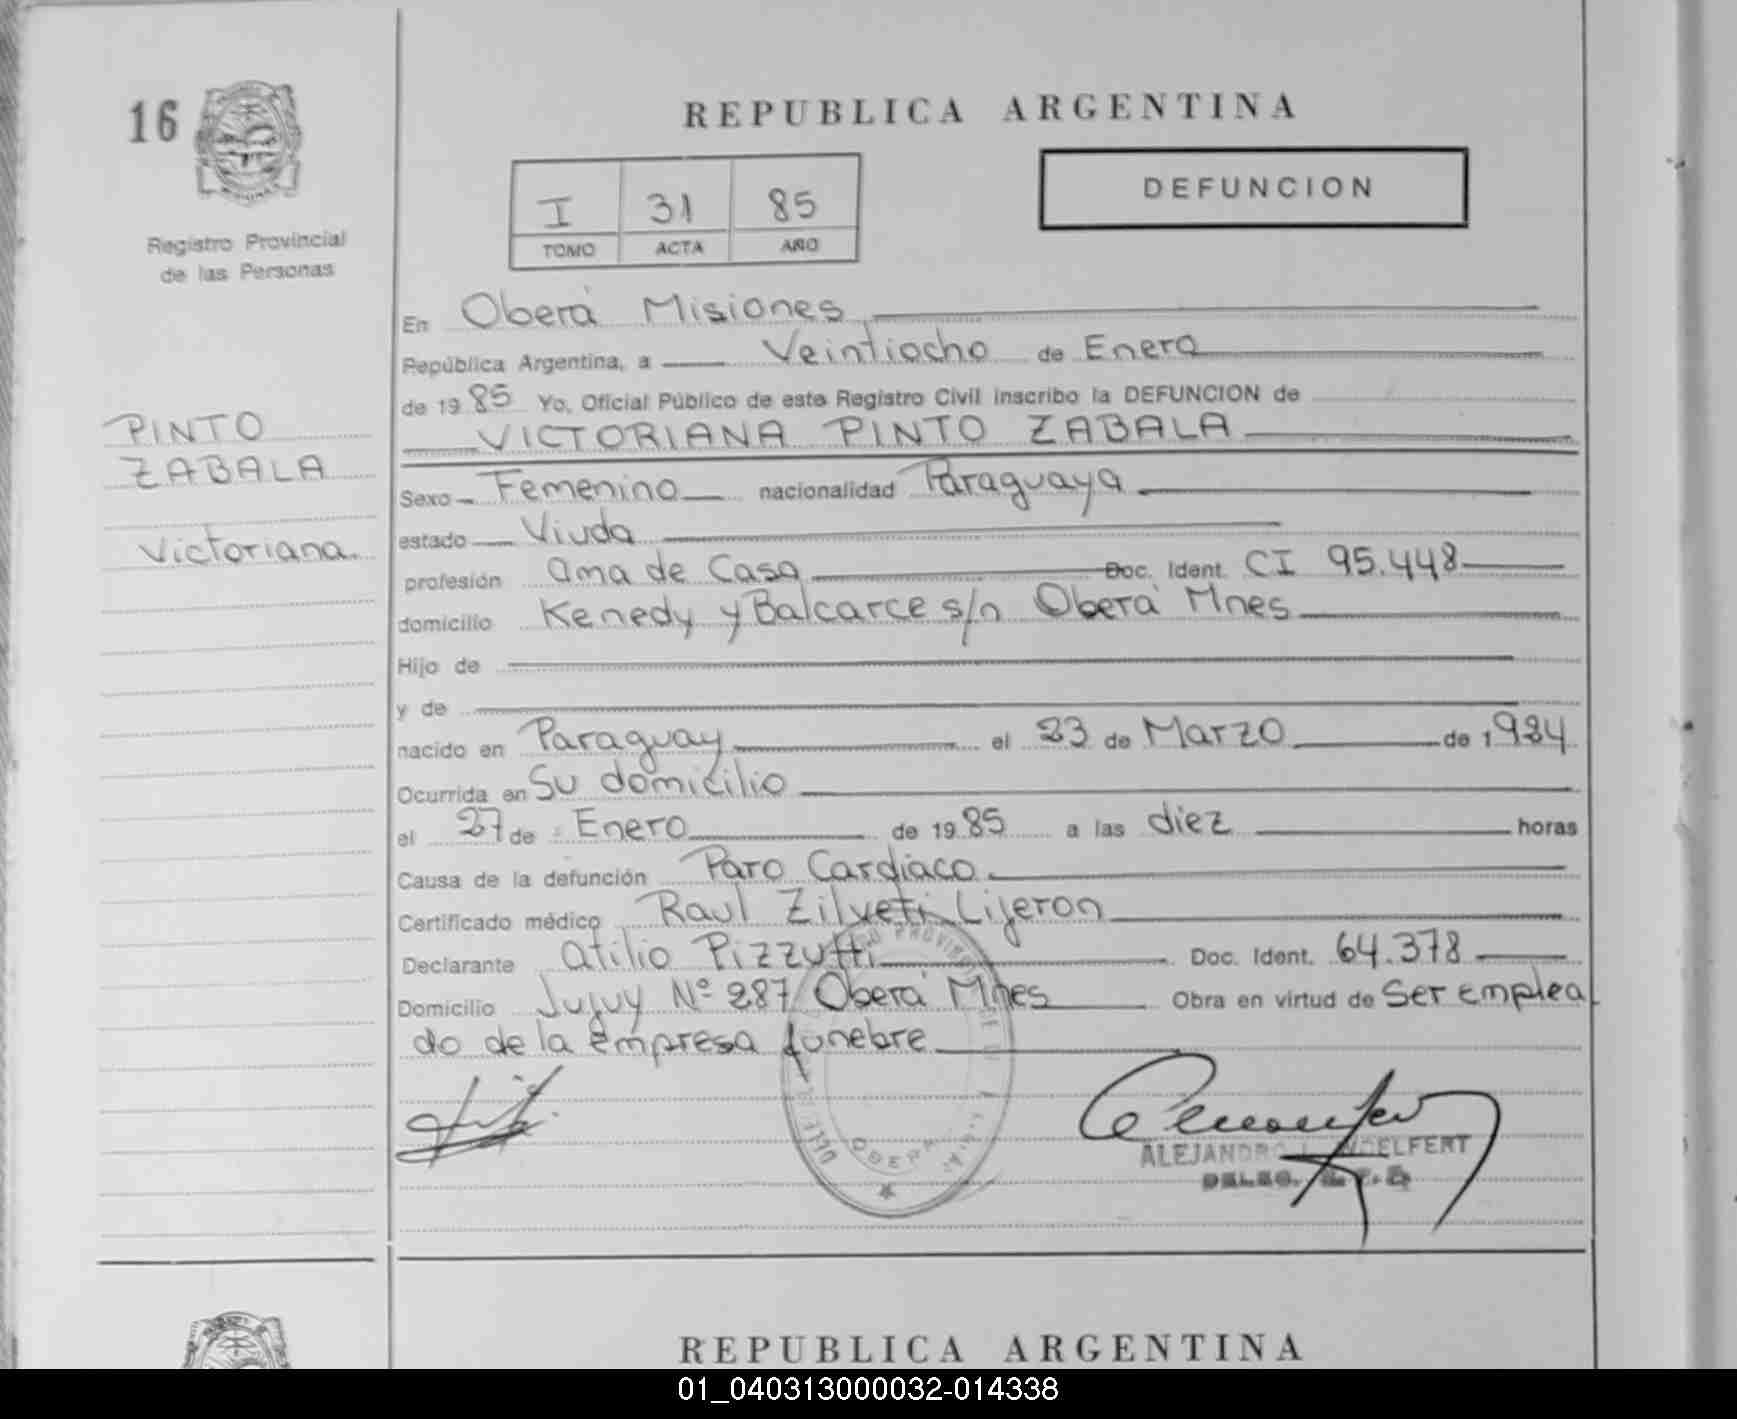 16
REPUBLICA ARGENTINA
DEFUNCION
I 31 85
TOMO ACTA AÑO
Registro Provincial
de las Personas
PINTO
ZABALA
Victoriana
En Oberá Misiones
República Argentina, a Veintiocho de Enero
de 1985 Yo, Oficial Público de este Registro Civil inscribo la DEFUNCION de
VICTORIANA PINTO ZABALA
Sexo Femenino nacionalidad Paraguaya
estado Viuda
profesión ama de Casa Doc. Ident. CI 95.448
domicilio Kenedy y Balcarce s/n Oberá Mnes
Hijo de
y de
nacido en Paraguay el 23 de Marzo de 1924
Ocurrida en Su domicilio
el 27 de Enero de 1985 a las diez horas
Causa de la defunción Paro Cardiaco
Certificado médico Raul Zilveti Lijeron
Declarante Atilio Pizzutti Doc. Ident. 64.378
Domicilio Jujuy Nº 287 Oberá Mnes Obra en virtud de Ser emplea
do de la empresa funebre
OBERA
ALEJANDRO WOELFERT
REPUBLICA ARGENTINA
01_040313000032-014338